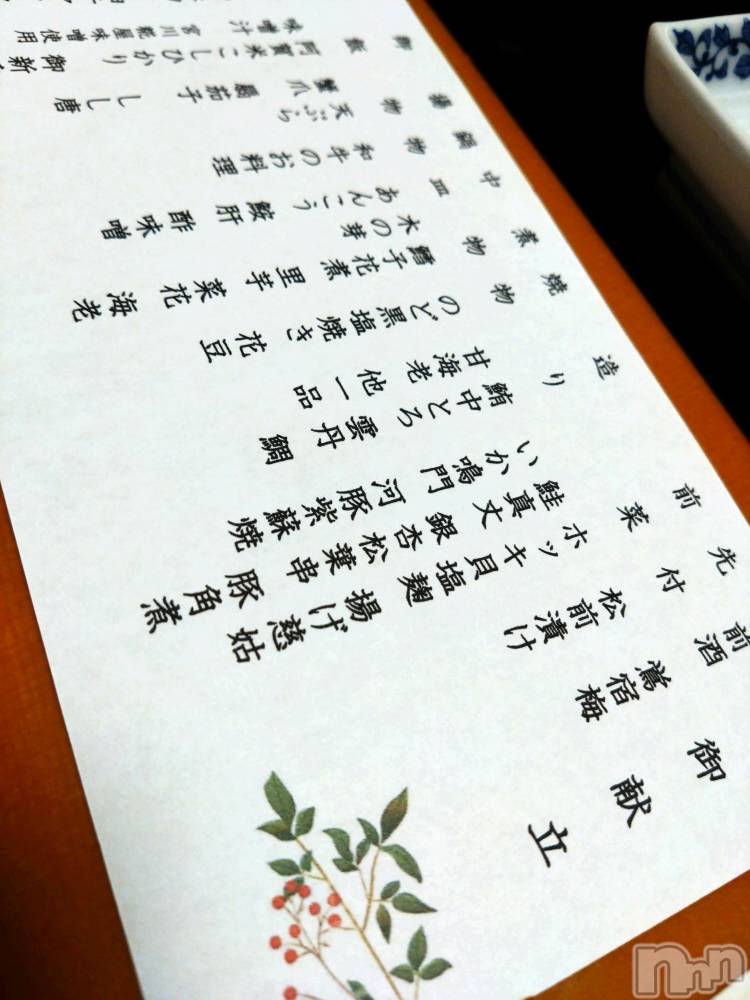 御献立
前酒 鶯宿梅
先付 松前漬け
前菜 ホッキ貝塩麹揚げ 慈姑
鮭真丈 銀杏松葉串 豚角煮
いか鳴門 河豚紫蘇焼
造り 鮪中とろ 雲丹 鯛
甘海老 他一品
焼物 のど黒塩焼き 花豆
煮物 鱈子花煮 里芋 菜花 海老
木の芽
中皿 あんこう 鮟肝 酢味噌
鍋物 和牛のお料理
揚物 天ぷら
蟹爪 茄子 しし唐
御飯 阿賀米こしひかり 御新
味噌汁 宮川糀屋味噌使用
nnn